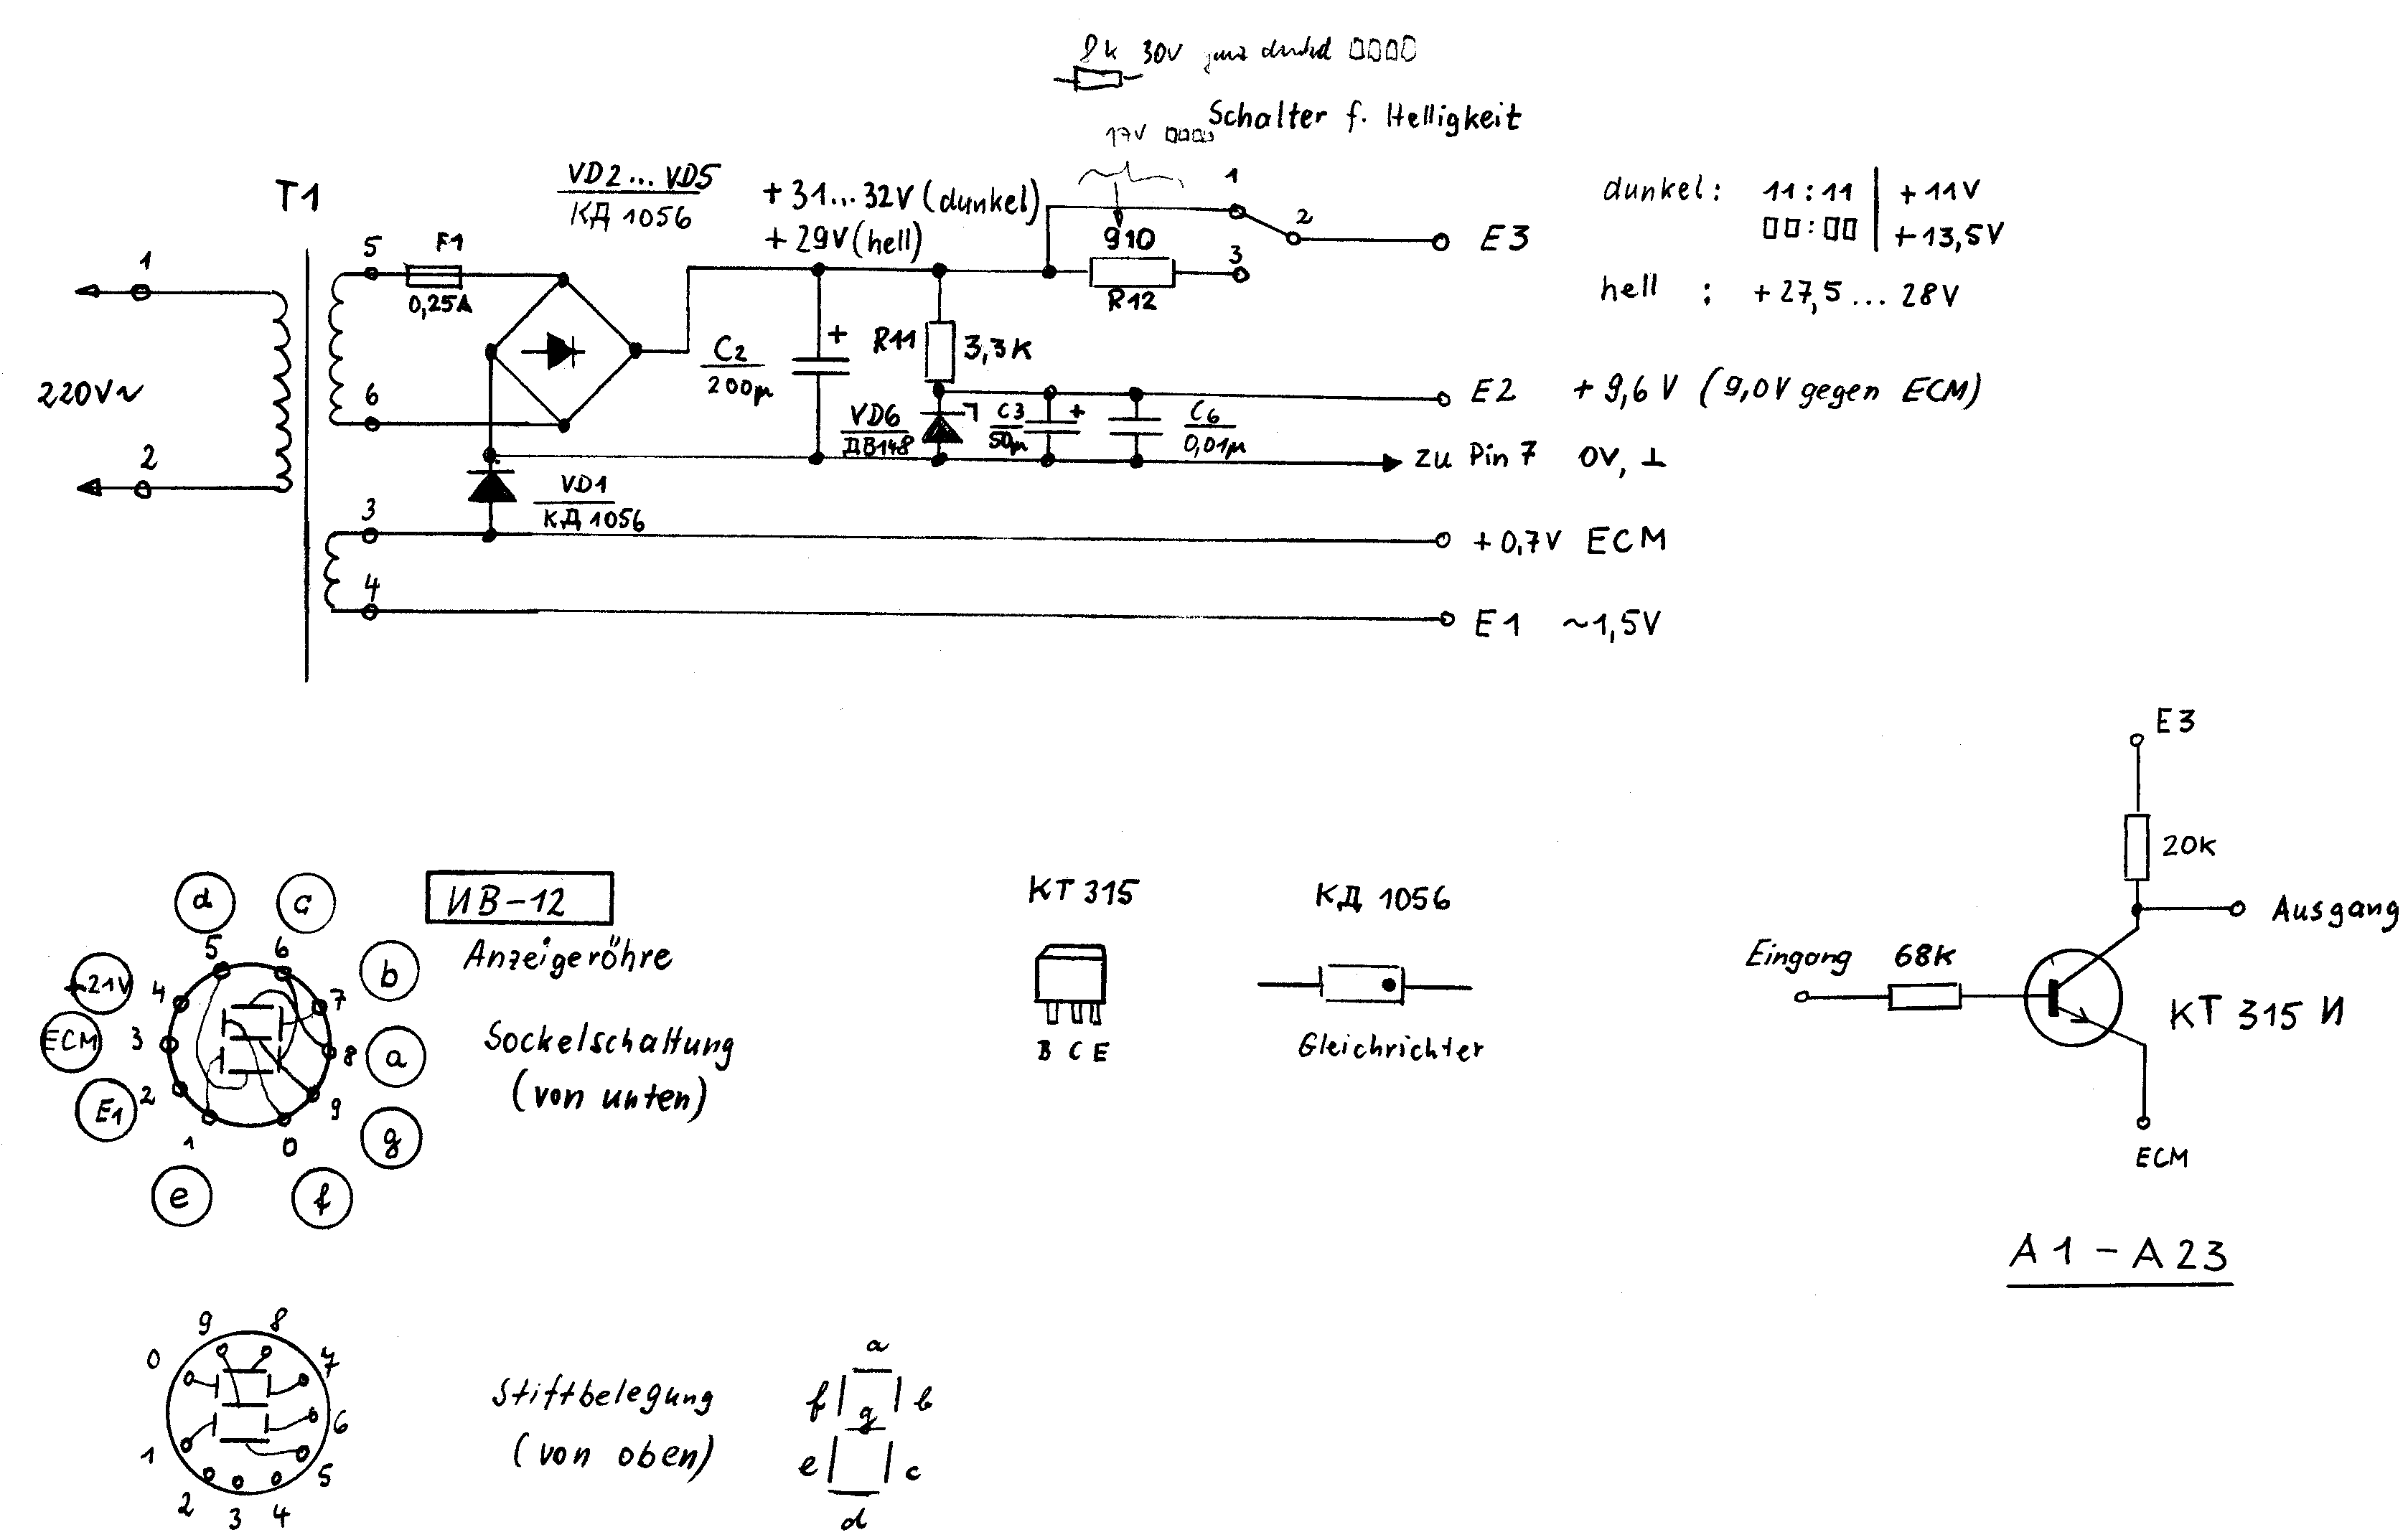 8k 30V ganz dunkel 0000
Schalter f. Helligkeit
17V 0000
T1
VD2...VD5
КД 1056
+ 31...32V (dunkel)
+ 29V (hell)
910
R12
1
2
3
E3
dunkel: 11:11 | +11V
00:00 | +13,5V
hell : +27,5... 28V
1
2
220V~
5
6
F1
0,25A
C2
200µ
+
R11
3,3K
VD6
ДВ148
C3
50µ
+
C6
0,01µ
E2 + 9,6 V (9,0V gegen ECM)
zu Pin 7 0V, ⊥
VD1
КД 1056
3
4
+0,7V ECM
E1 ~1,5V
ИВ-12
Anzeigeröhre
Sockelschaltung
(von unten)
d
c
b
a
g
f
e
E1
ECM
+21V
5
6
7
8
9
0
1
2
3
4
КТ 315
B C E
КД 1056
Gleichrichter
E3
20K
Ausgang
Eingang 68K
КТ 315 И
ECM
A1 - A23
9
8
7
6
5
4
3
2
1
0
Stiftbelegung
(von oben)
a
f
b
g
e
c
d